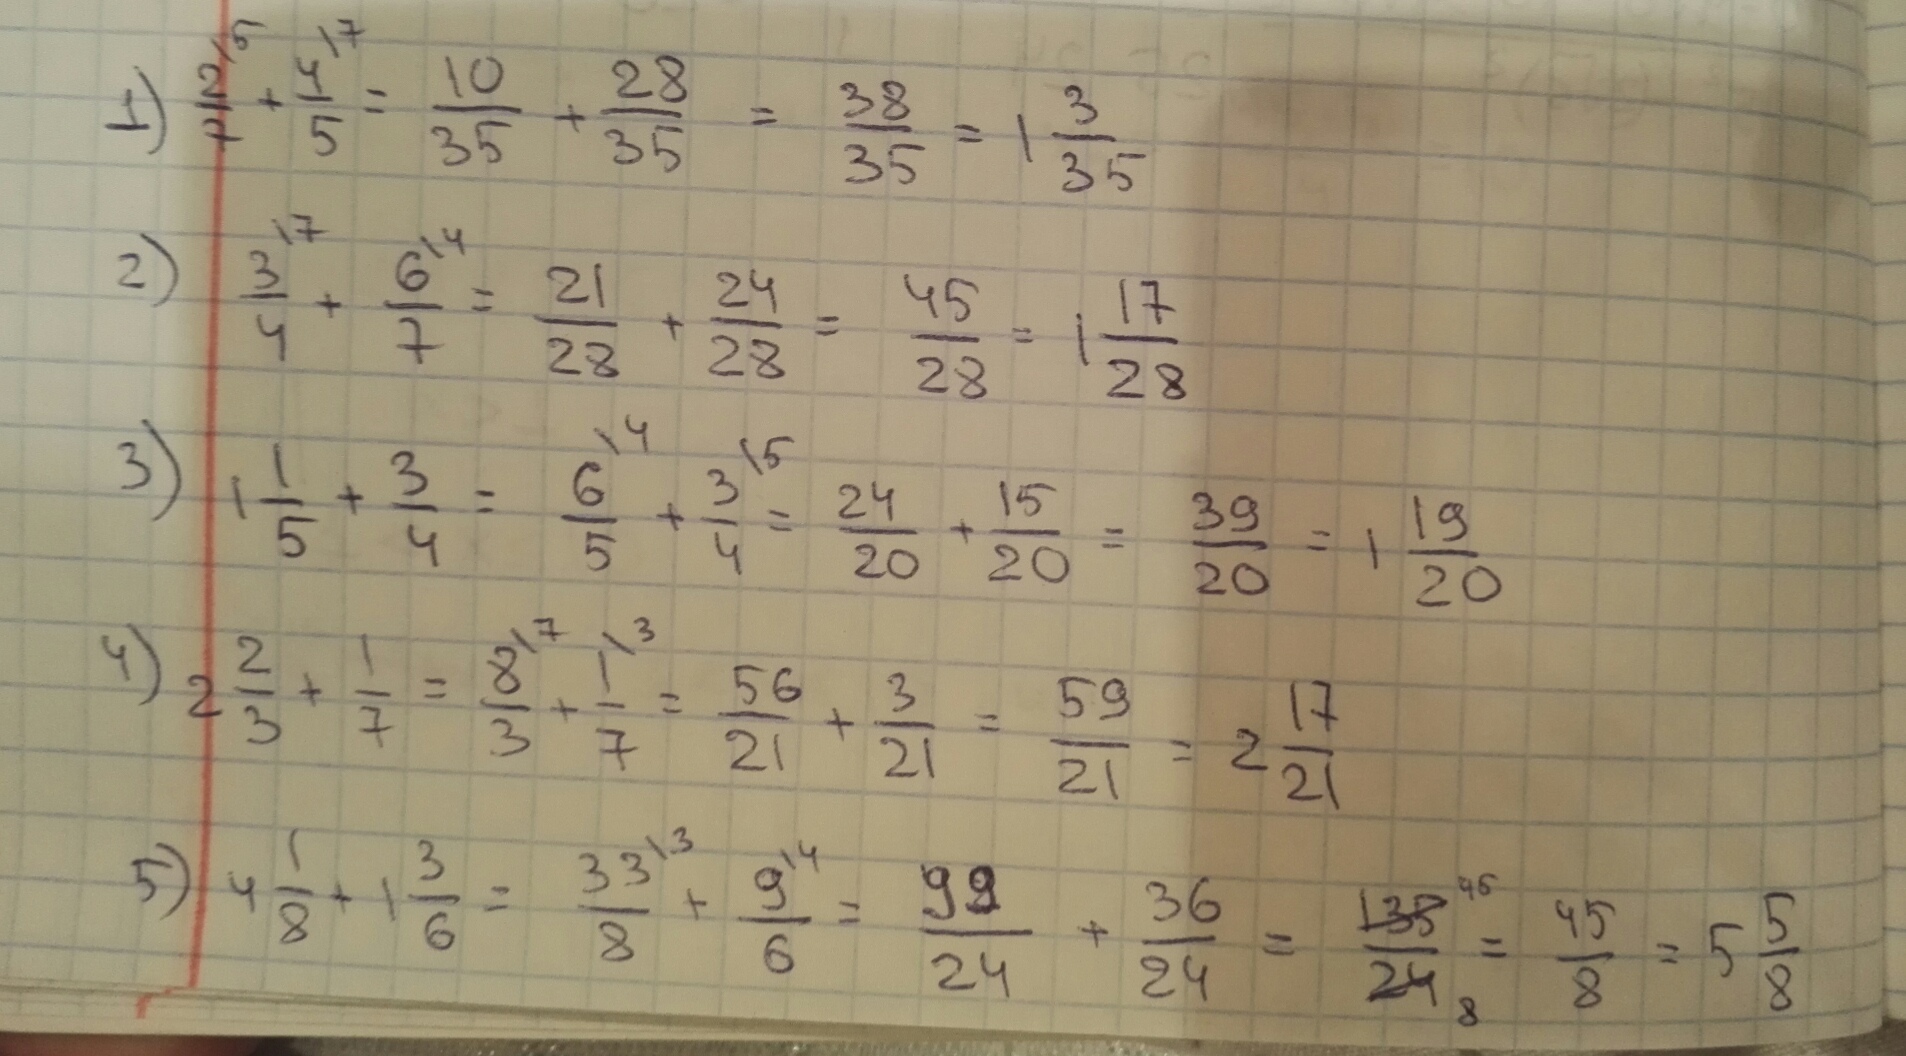 1) 2/7 \5 + 4/5 \7 = 10/35 + 28/35 = 38/35 = 1 3/35
2) 3/4 \7 + 6/7 \4 = 21/28 + 24/28 = 45/28 = 1 17/28
3) 1 1/5 + 3/4 = 6/5 \4 + 3/4 \5 = 24/20 + 15/20 = 39/20 = 1 19/20
4) 2 2/3 + 1/7 = 8/3 \7 + 1/7 \3 = 56/21 + 3/21 = 59/21 = 2 17/21
5) 4 1/8 + 1 3/6 = 33/8 \3 + 9/6 \4 = 99/24 + 36/24 = 135/24 45 8 = 45/8 = 5 5/8